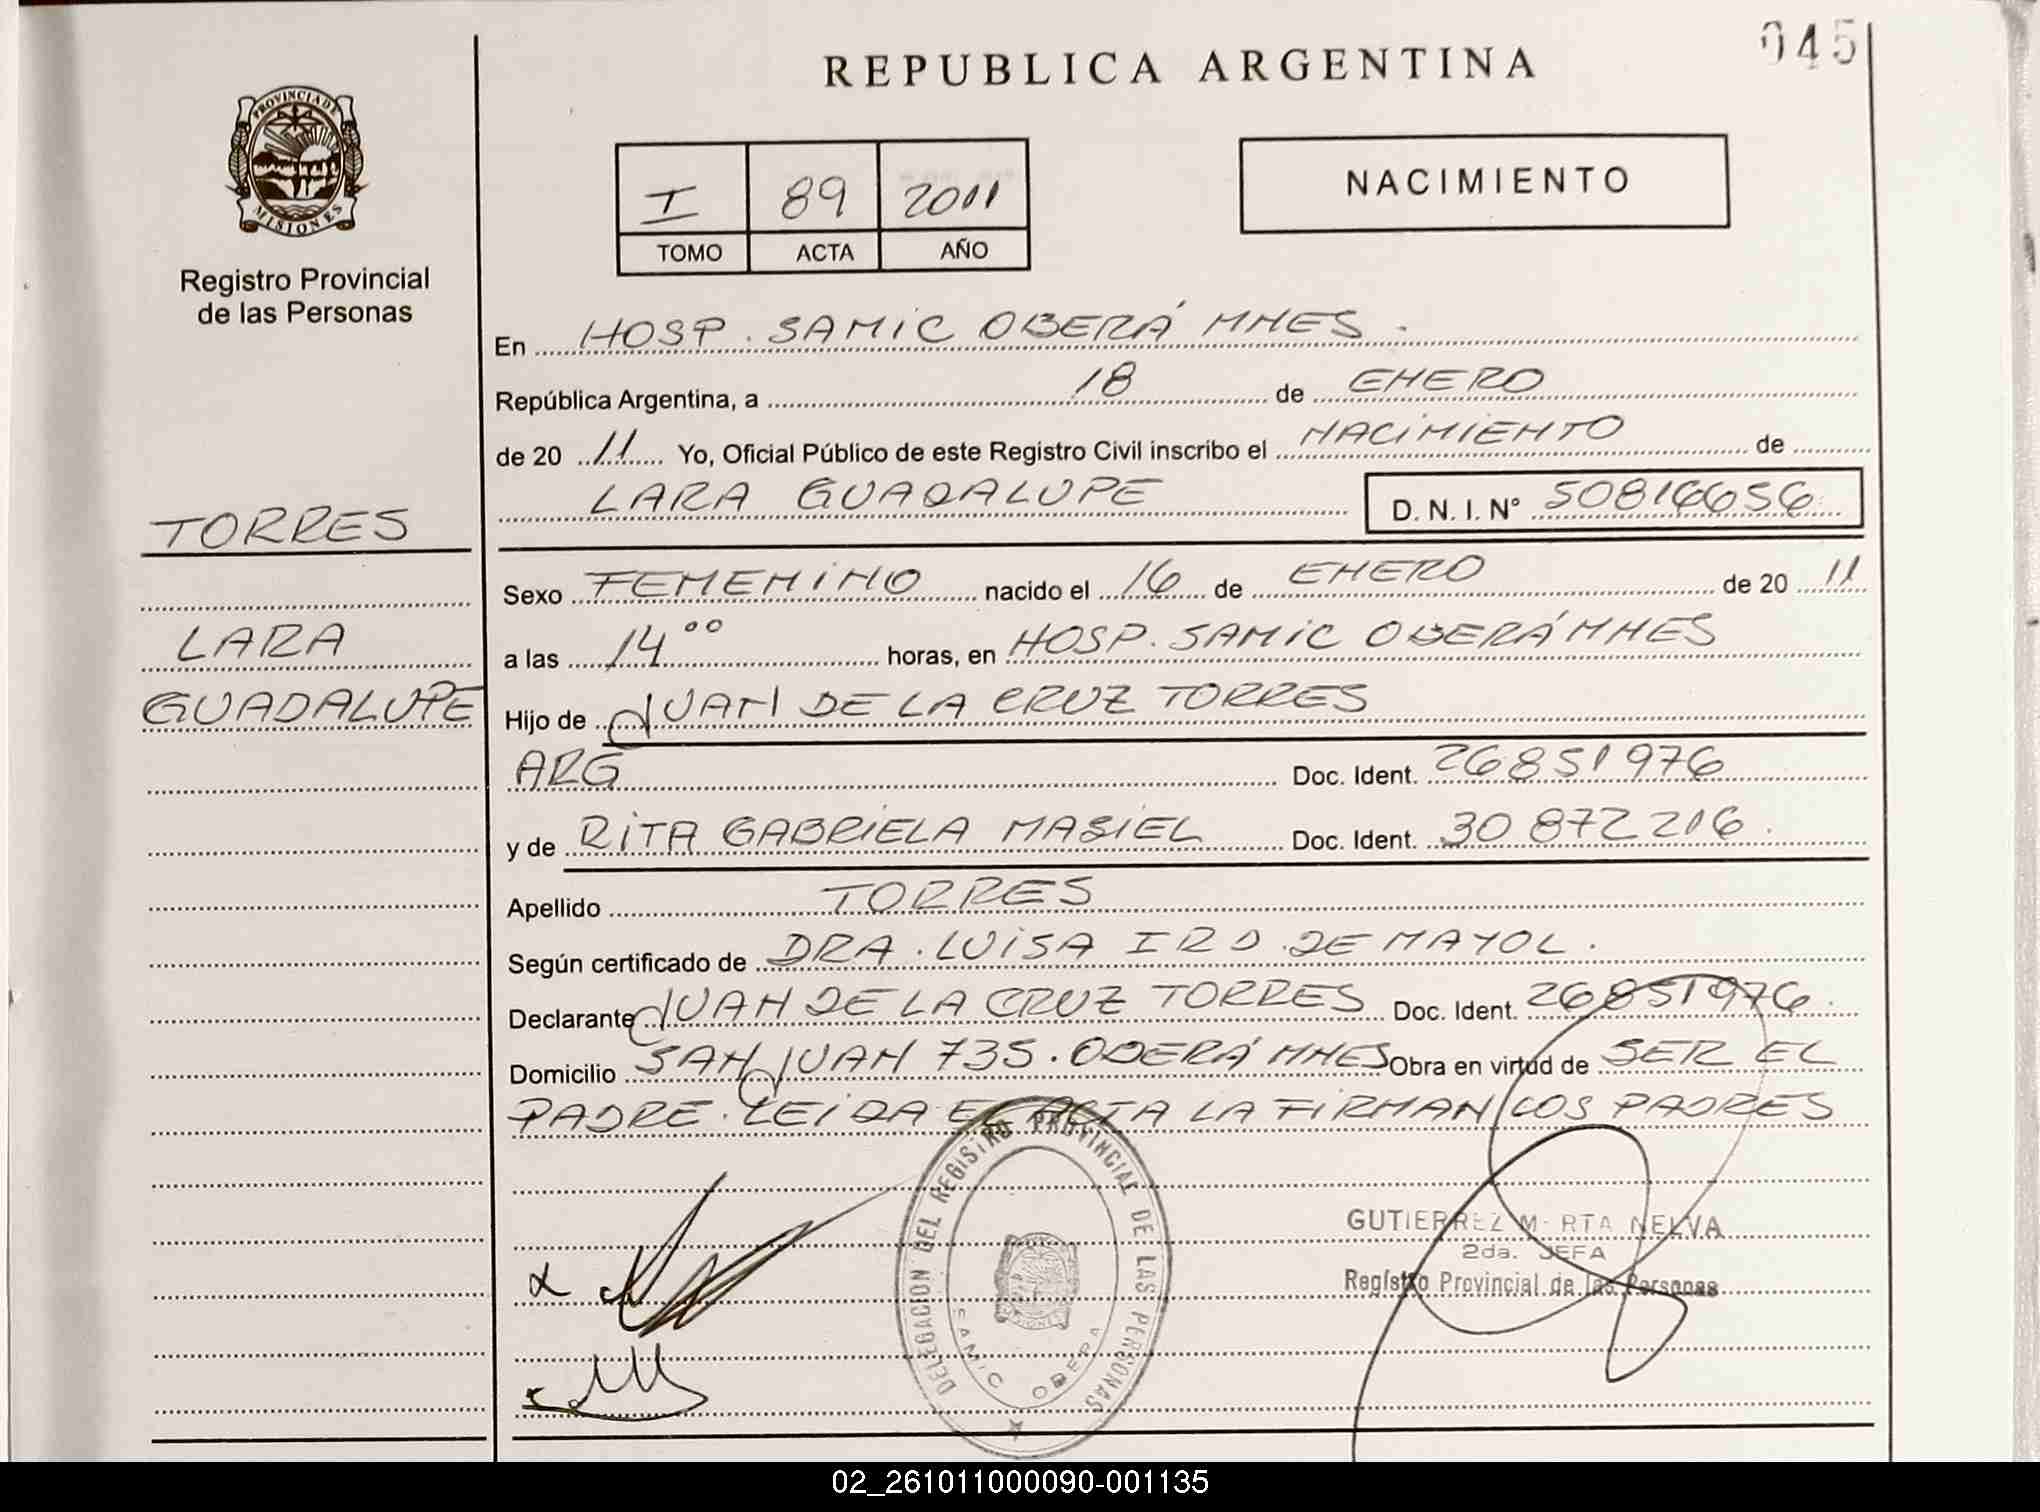 045
REPUBLICA ARGENTINA
PROVINCIA DE
MISIONES
Registro Provincial
de las Personas
I 89 2011
TOMO ACTA AÑO
NACIMIENTO
En HOSP. SAMIC OBERÁ MNES.
República Argentina, a 18 de ENERO
de 20 11 Yo, Oficial Público de este Registro Civil inscribo el NACIMIENTO de
LARA GUADALUPE D. N. I. Nº 50816656
TORRES
LARA
GUADALUPE
Sexo FEMENINO nacido el 16 de ENERO de 20 11
a las 14 00 horas, en HOSP. SAMIC OBERÁ MNES
Hijo de JUAN DE LA CRUZ TORRES
ARG Doc. Ident. 26851976
y de RITA GABRIELA MASIEL Doc. Ident. 30872216.
Apellido TORRES
Según certificado de DRA. LUISA I R D. DE MAYOL.
Declarante JUAN DE LA CRUZ TORRES Doc. Ident. 26851976.
Domicilio SAN JUAN 735. OBERÁ MNES Obra en virtud de SER EL
PADRE. LEIDA EL ACTA LA FIRMAN LOS PADRES
DELEGACION DEL REGISTRO PROVINCIAL DE LAS PERSONAS
SAMIC OBERA
GUTIERREZ M RTA NELVA
2da. JEFA
Registro Provincial de las Personas
02_261011000090-001135